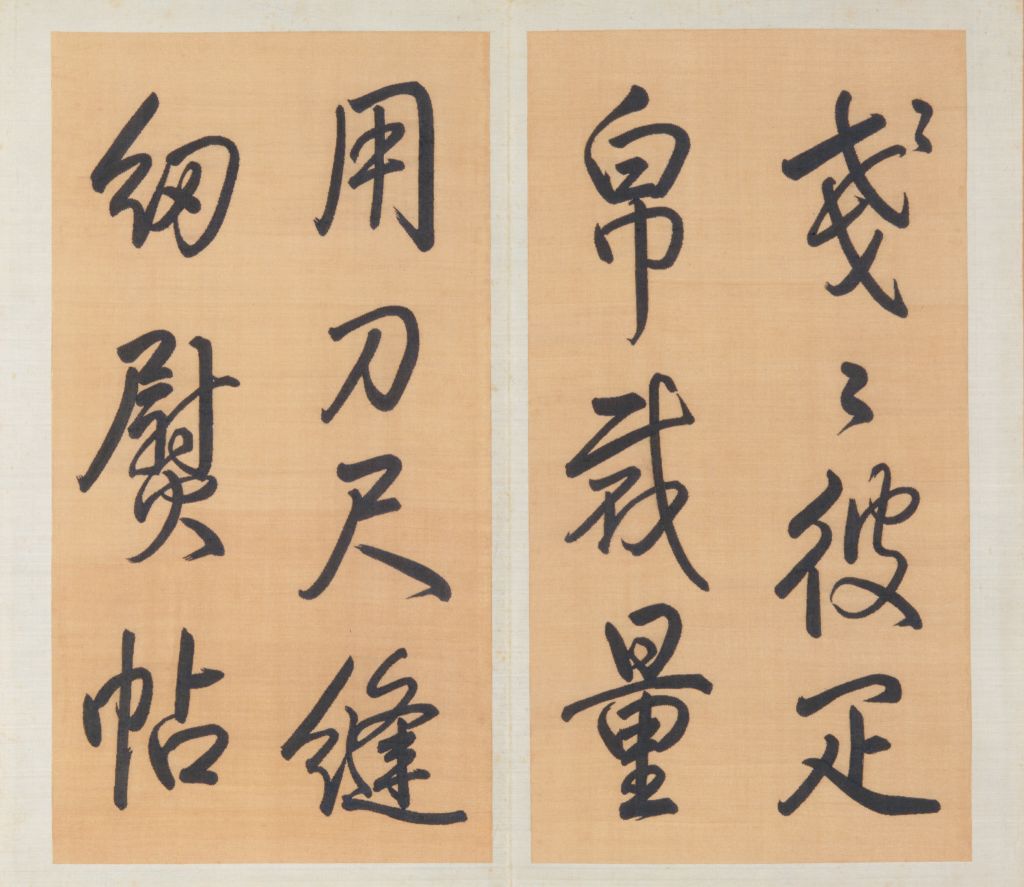 戔〻彼疋
帛裁量
用刀尺縫
細熨帖